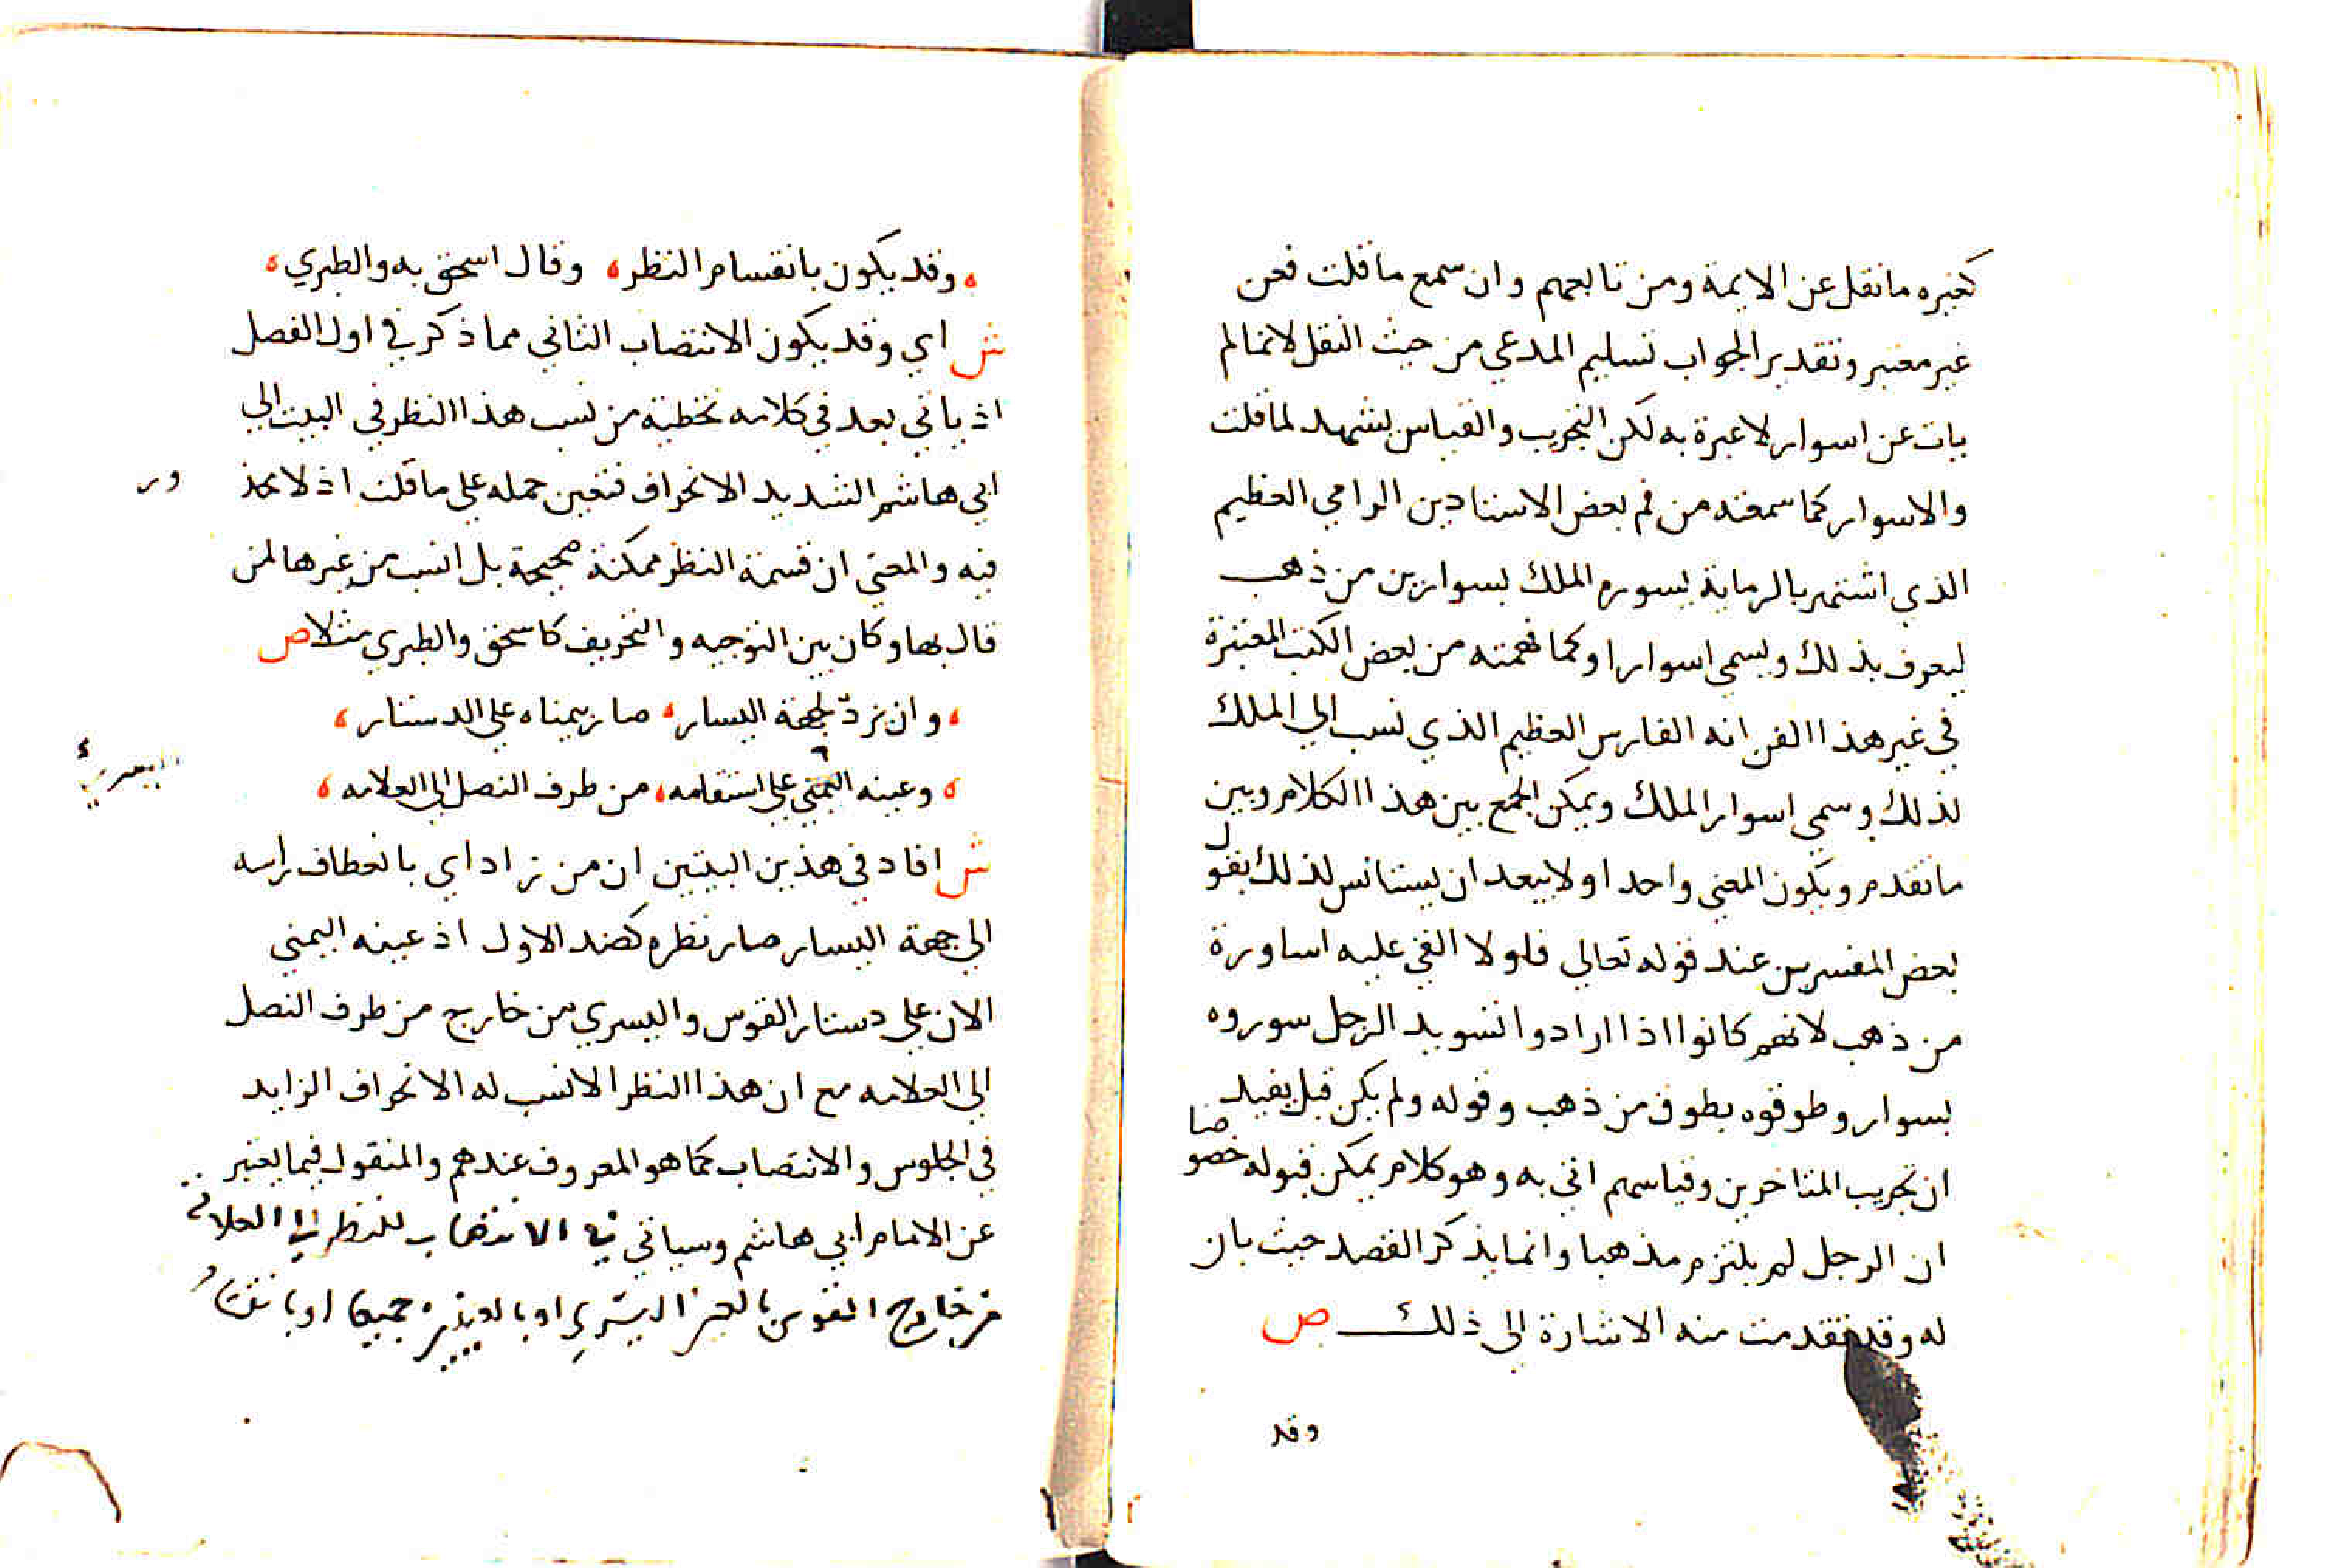 كغيره ما نقل عن الايمة ومن تابعهم وان سمع ما قلت فعن
غير معتبر وتقدير الجواب تسليم المدعي من حيث النقل لانما لم
يات عن اسوار لا عبرة به لكن التجريب والقياس يشهد لما قلت
والاسوار كما سمعته من فم بعض الاستادين الرامي العظيم
الذي اشتهر بالرماية يسوره الملك بسوارين من ذهب
ليعرف بذلك ويسمي اسوارا وكما فهمته من بعض الكتب المعتبرة
في غير هذا الفن انه الفارس العظيم الذي نسب الي الملك
لذلك وسمي اسوار الملك ويمكن الجمع بين هذا الكلام وبين
ما تقدم ويكون المعني واحدا ولا يبعد ان يستانس لذلك بقول
بعض المفسرين عند قوله تعالي فلولا القي عليه اساورة
من ذهب لانهم كانوا اذا ارادوا تسويد الرجل سوروه
بسوار وطوقوه بطوق من ذهب وقوله ولم يكن قبل يفيد
ان تجريب المتاخرين وقياسهم اتي به وهو كلام يمكن قبوله خصوصا
ان الرجل لم يلتزم مذهبا وانما يذكر القصد حيث بان
له وقد تقدمت منه الاشارة الي ذلك ص
وقد
وقد يكون بانقسام النظر، وقال اسحق به والطبري،
ش اي وقد يكون الانتصاب الثاني مما ذكر في اول الفصل
اذ ياتي بعد في كلامه تخطية من نسب هذا النظر في البيت الي
ابي هاشم الشديد الانحراف فتعين حمله علي ما قلت اذ لا محذ
ور
فيه والمعني ان قسمة النظر ممكنة صحيحة بل انسب من غيرها لمن
قال بها وكان بين التوجيه والتحريف كاسحق والطبري مثلا ص
، وان تزد لجهة اليسار، صار يمناه علي الدستار،
، وعينه اليمني علي استقامه، من طرف النصل الي العلامه،
اليسري
ش افاد في هذين البيتين ان من زاد اي بانعطاف راسه
الي جهة اليسار صار نظره كضد الاول اذ عينه اليمني
الان علي دستار القوس واليسري من خارج من طرف النصل
الي العلامه مع ان هذا النظر الانسب له الانحراف الزايد
في الجلوس والانتصاب كما هو المعروف عندهم والمنقول فيما يعتبر
عن الامام ابي هاشم وسياتي في الانتصاب للنظر الي العلامة
من خارج القوس بالعين اليسري او بالعينين جميعا او